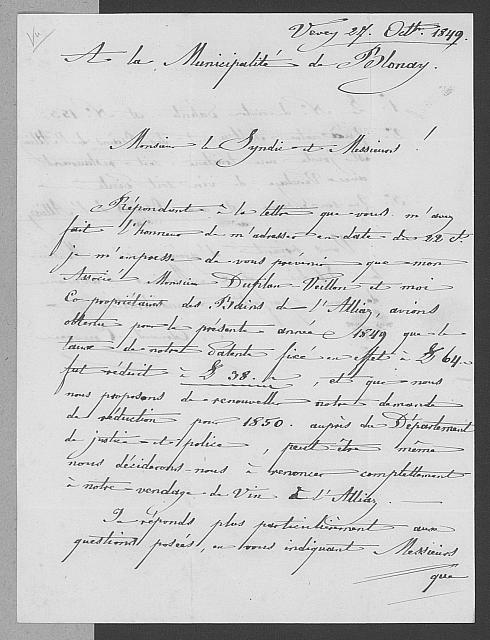 Vevey 27. Octbr. 1849.
A la Municipalité de Blonay.
Monsieur le Syndic et Messieurs!
Répondant à la lettre que vous m'avez
fait l'honneur de m'adresser en date du 22 Ct.
je m'empresse de vous prévenir que mon
Associé Monsieur Duplan Veillon et moi
Co propriétaires des Bains de l'Alliaz, avions
obtenu pour la présente année 1849 que le
taux de notre patente fixé en effet à L 64.
fut réduit à L 38. , et que nous
nous proposons de renouveller notre demande
de réduction pour 1850. auprès du Département
de justice et police, peut être même
nous déciderons nous à renoncer complettement
à notre vendage de Vin à l'Alliaz.
Je réponds plus particulièrement aux
questions posées, en vous indiquant Messieurs
que